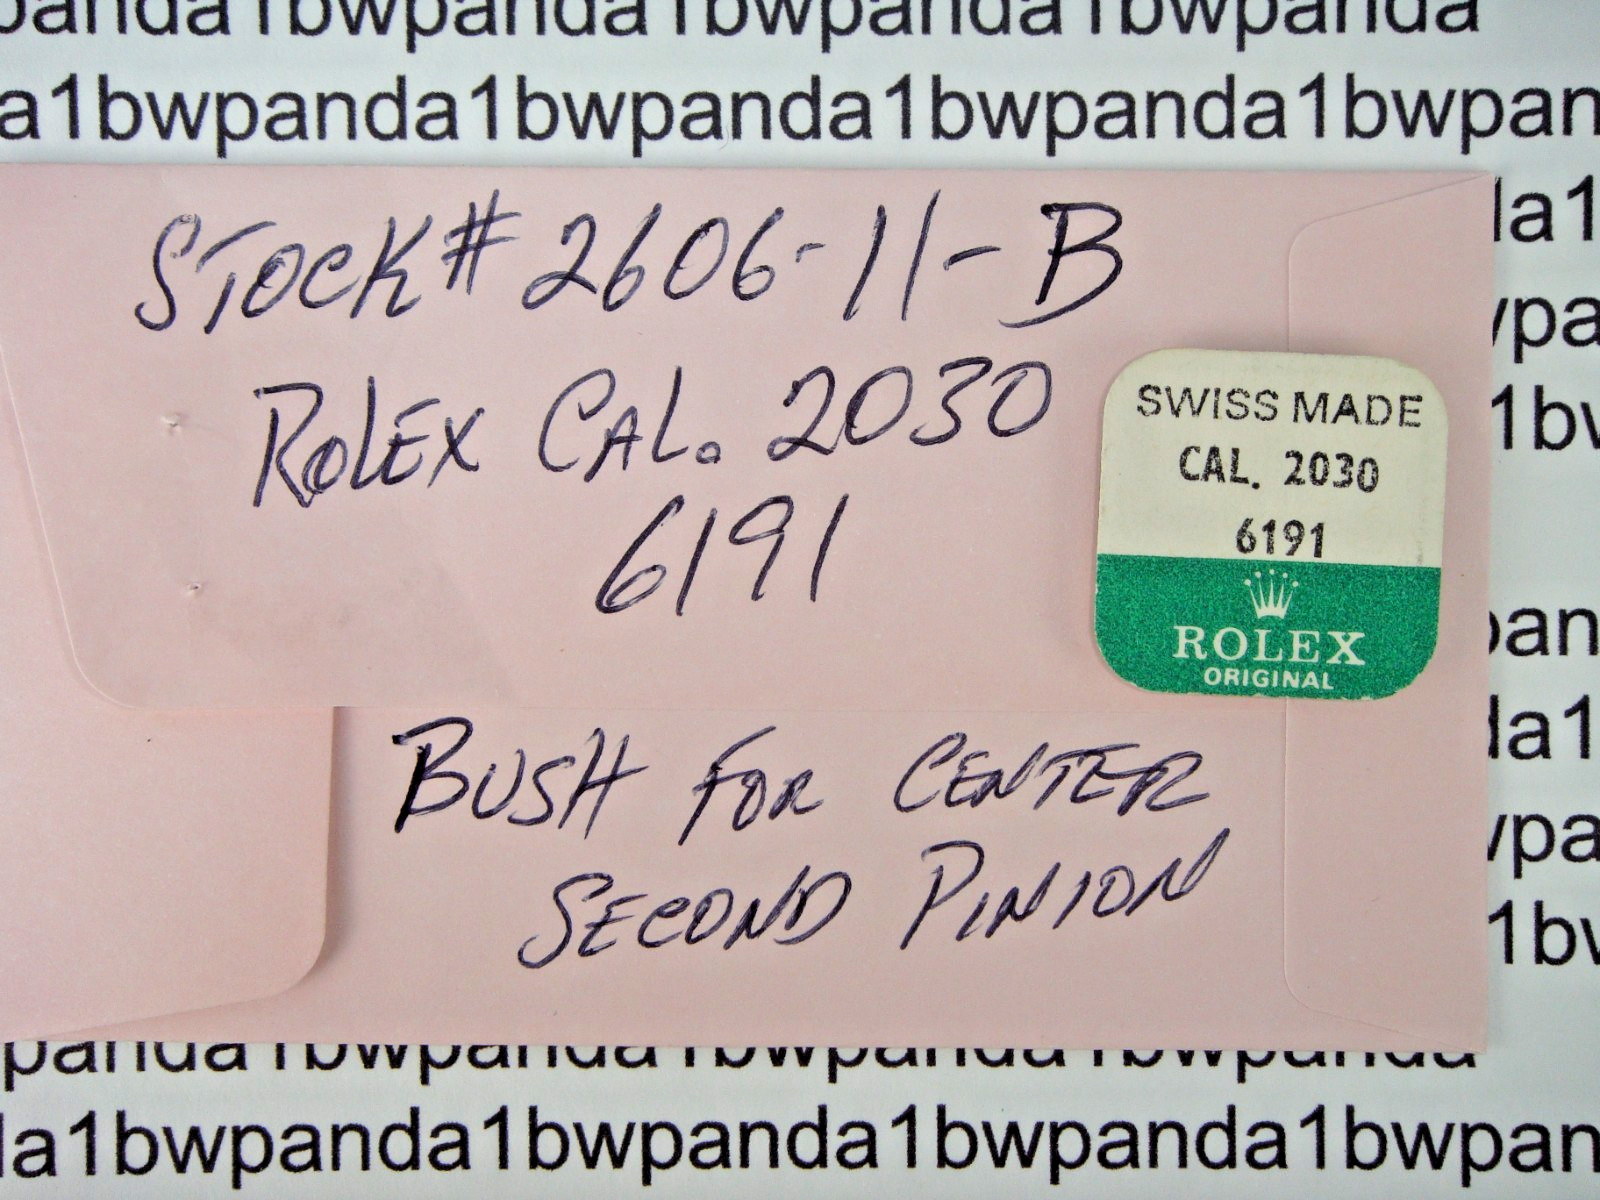 panda1bwpanda1bwpanda1bwpanda
a1bwpanda1bwpanda1bwpanda1bwpan
STOCK# 2606-11-B
ROLEX CAL. 2030
6191
SWISS MADE
CAL. 2030
6191
ROLEX
ORIGINAL
BUSH FOR CENTER
SECOND PINION
da1
wpa
1bw
pan
da1
wpa
1bw
panda1bwpanda1bwpanda1bwpanda
da1bwpanda1bwpanda1bwpanda1bwpan